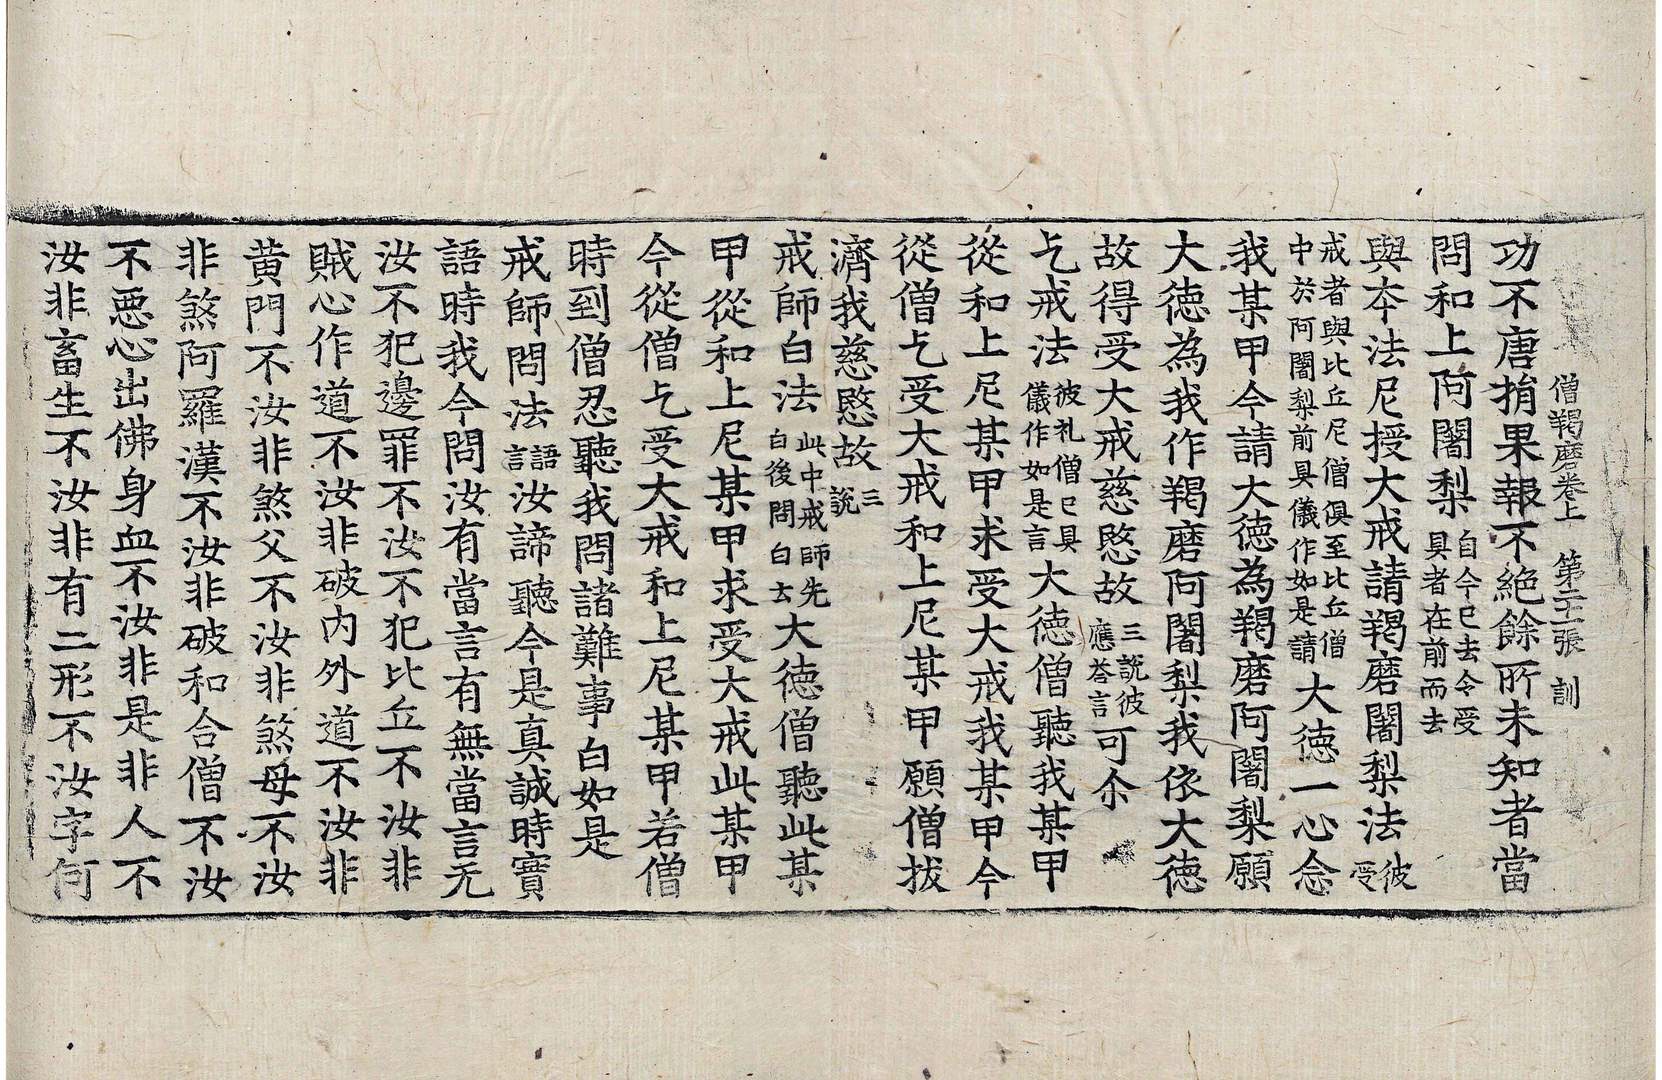 僧羯磨卷上 第二十一張 訓
功不唐捐果報不絶餘所未知者當
問和上阿闍梨自今已去令受具者在前而去
與本法尼授大戒請羯磨闍梨法彼受
戒者與比丘尼僧俱至比丘僧中於阿闍梨前具儀作如是請大德一心念
我某甲今請大德為羯磨阿闍梨願
大德為我作羯磨阿闍梨我依大德
故得受大戒慈愍故三說彼應荅言可尒
乞戒法彼礼僧已具儀作如是言大德僧聽我某甲
從和上尼某甲求受大戒我某甲今
從僧乞受大戒和上尼某甲願僧拔
濟我慈愍故三說
戒師白法此中戒師先白後問白言大德僧聽此某
甲從和上尼某甲求受大戒此某甲
今從僧乞受大戒和上尼某甲若僧
時到僧忍聽我問諸難事白如是
戒師問法語言汝諦聽今是真誠時實
語時我今問汝有當言有無當言无
汝不犯邊罪不汝不犯比丘不汝非
賊心作道不汝非破內外道不汝非
黃門不汝非煞父不汝非煞母不汝
非煞阿羅漢不汝非破和合僧不汝
不惡心出佛身血不汝非是非人不
汝非畜生不汝非有二形不汝字何